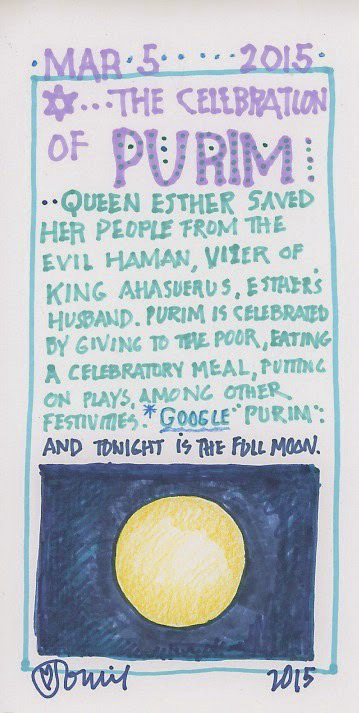 MAR 5 2015
...THE CELEBRATION
OF PURIM
..QUEEN ESTHER SAVED
HER PEOPLE FROM THE
EVIL HAMAN, VIZER OF
KING AHASUERUS, ESTHER'S
HUSBAND. PURIM IS CELEBRATED
BY GIVING TO THE POOR, EATING
A CELEBRATORY MEAL, PUTTING
ON PLAYS, AMONG OTHER
FESTIVITIES. *GOOGLE "PURIM":
AND TONIGHT IS THE FULL MOON.
2015